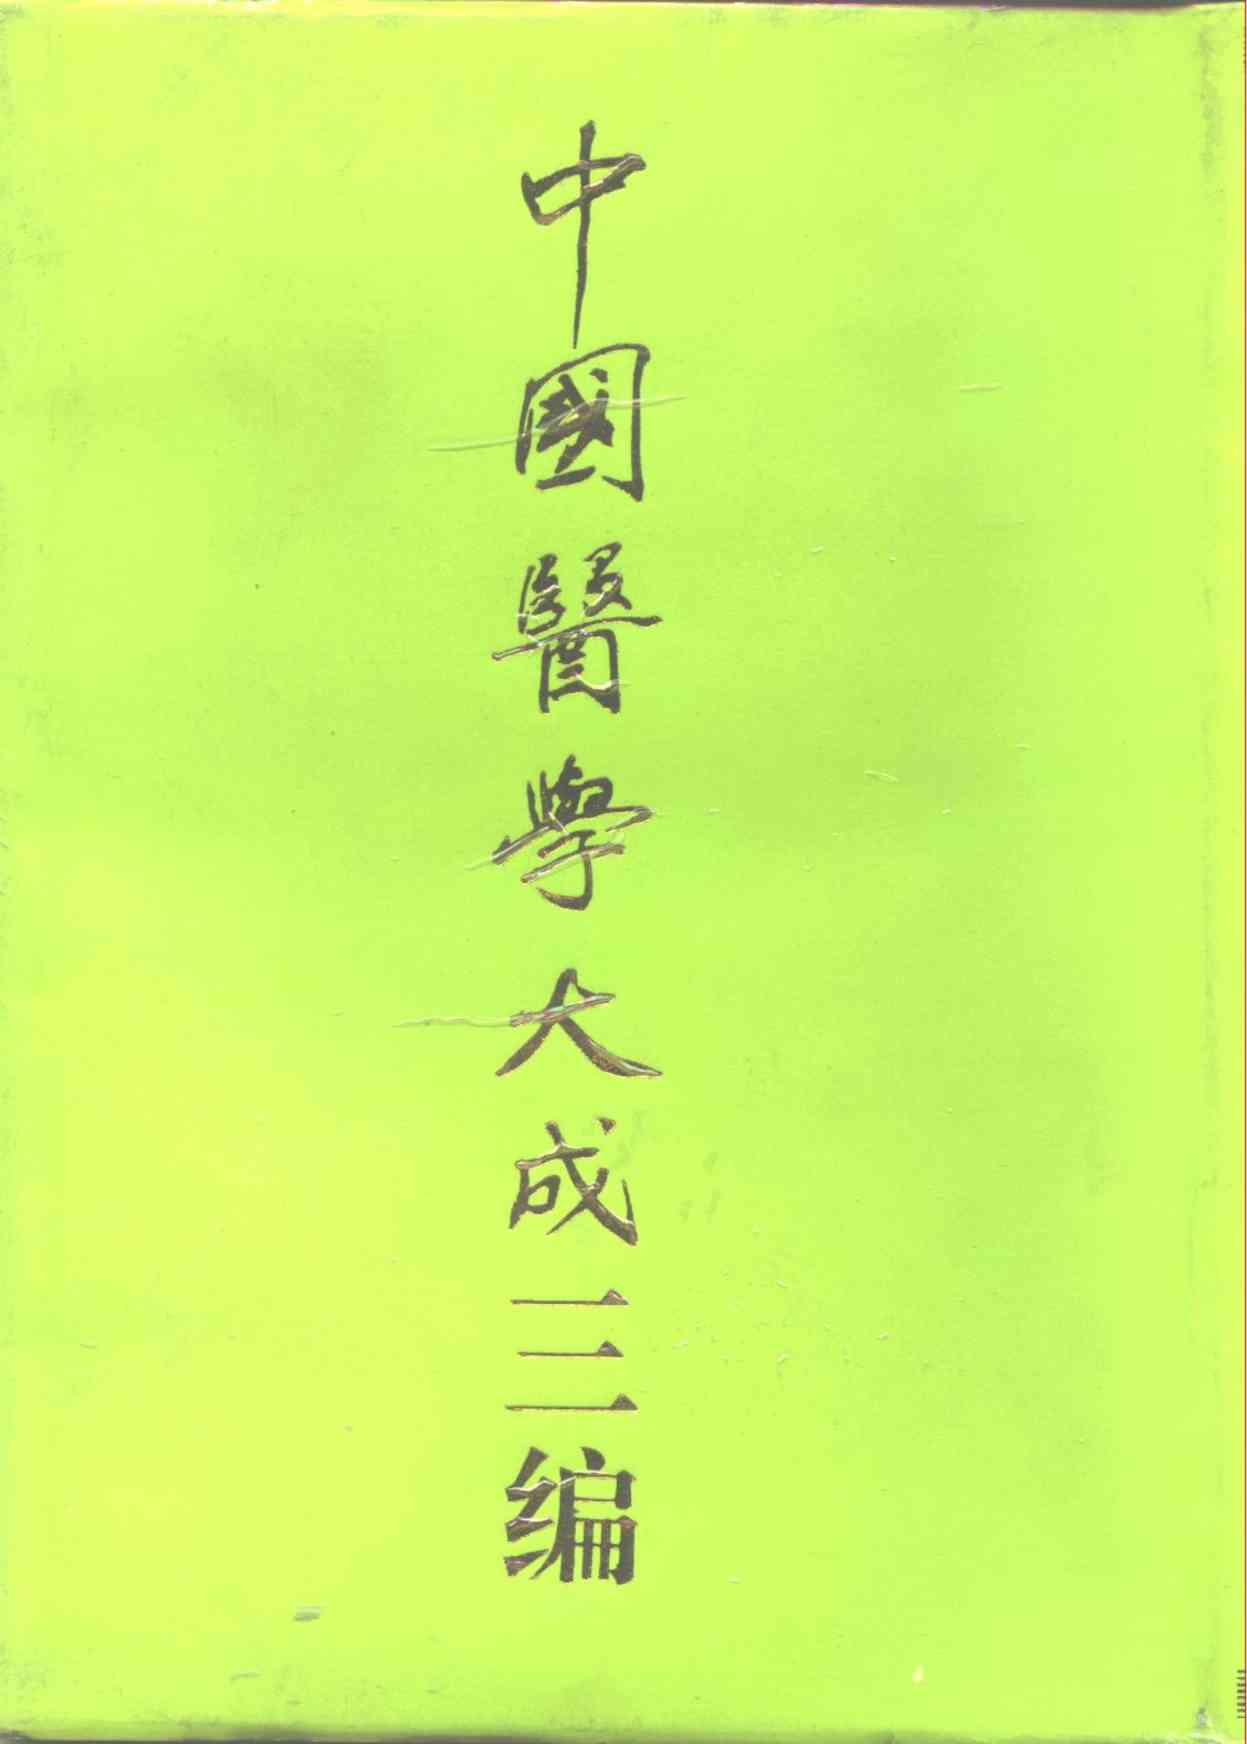 中國醫學大成三编